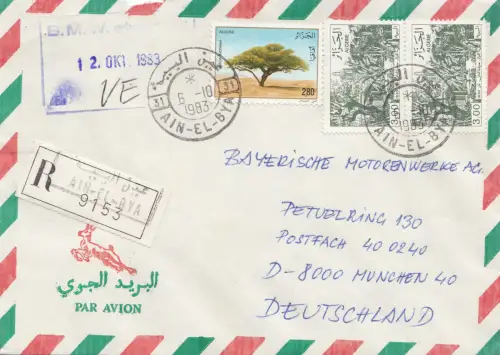 B.M.W.
12. OKT. 1983
VE
عين البية
6-10
1983
31 31
AIN-EL-BYA
الجزائر
ALGERIE
2.80
الجزائر
ALGERIE
3.00
الجزائر
ALGERIE
3.00
1983
AIN-EL-BYA
R
عين البية
AIN-EL-BYA
9153
البريد الجوي
PAR AVION
BAYERISCHE MOTORENWERKE AG.
PETUELRING 130
POSTFACH 40 0240
D-8000 MÜNCHEN 40
DEUTSCHLAND